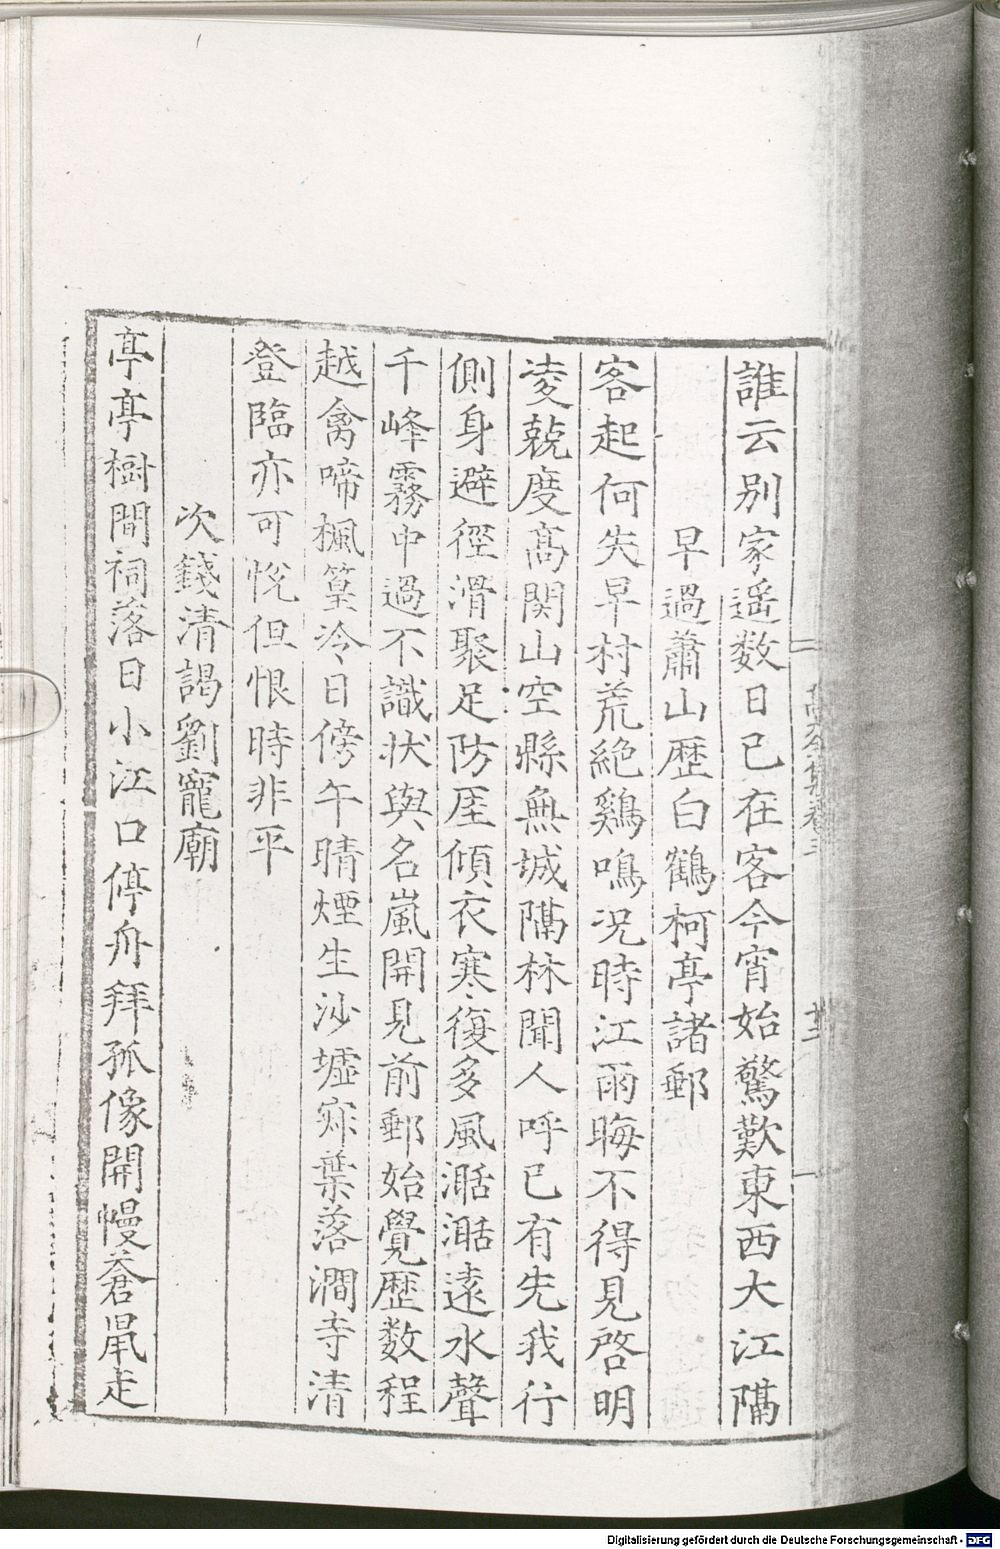 誰云别家遥数日已在客今宵始驚歎東西大江隔
早過蕭山歷白鶴柯亭諸郵
客起何失早村荒絶鷄鳴况時江雨晦不得見啓明
凌兢度髙関山空縣無城隔林聞人呼已有先我行
側身避徑滑聚足防厓傾衣寒復多風湉湉遠水聲
千峰霧中過不識状與名嵐開見前郵始覺歴数程
越禽啼楓篁冷日傍午晴煙生沙墟寂葉落澗寺清
登臨亦可悅但恨時非平
次錢清謁劉寵廟
亭亭樹間祠落日小江口停舟拜孤像開幔蒼鼠走
Digitalisierung gefördert durch die Deutsche Forschungsgemeinschaft - DFG